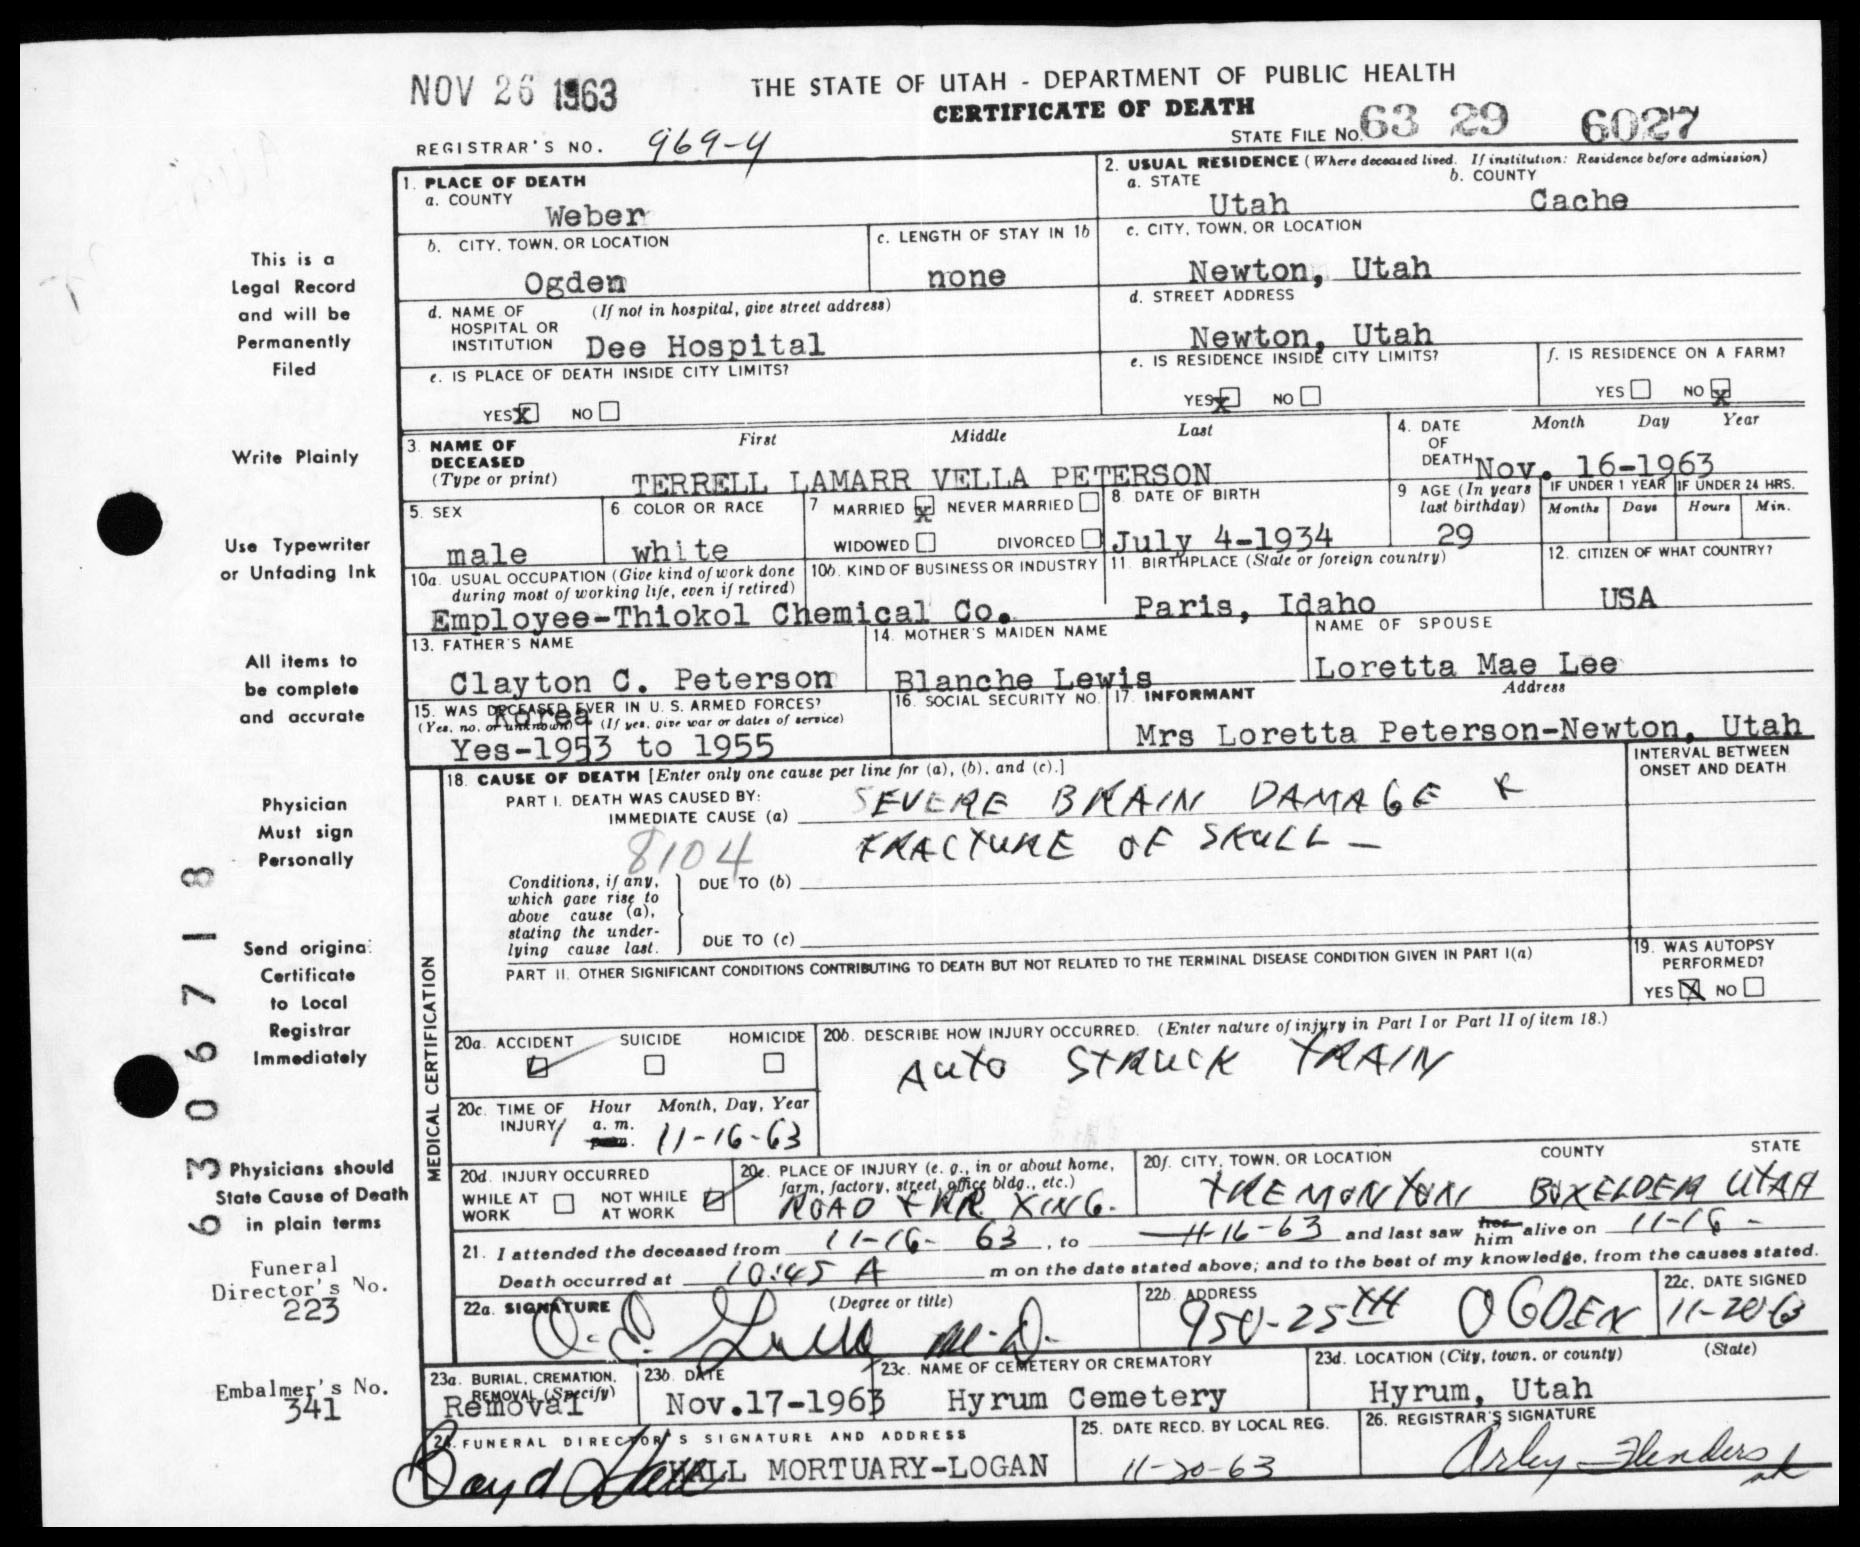 NOV 26 1963
THE STATE OF UTAH - DEPARTMENT OF PUBLIC HEALTH
CERTIFICATE OF DEATH
REGISTRAR'S NO. 969-4
STATE FILE NO. 63 29 6027
1. PLACE OF DEATH
a. COUNTY
Weber
2. USUAL RESIDENCE (Where deceased lived. If institution: Residence before admission)
a. STATE
Utah
b. COUNTY
Cache
b. CITY, TOWN, OR LOCATION
Ogden
c. LENGTH OF STAY IN 1b
none
c. CITY, TOWN, OR LOCATION
Newton, Utah
d. NAME OF HOSPITAL OR INSTITUTION (If not in hospital, give street address)
Dee Hospital
d. STREET ADDRESS
Newton, Utah
e. IS PLACE OF DEATH INSIDE CITY LIMITS?
YES X NO
e. IS RESIDENCE INSIDE CITY LIMITS?
YES X NO
f. IS RESIDENCE ON A FARM?
YES NO X
3. NAME OF DECEASED (Type or print)
First Middle Last
TERRELL LAMARR VELLA PETERSON
4. DATE OF DEATH
Month Day Year
Nov. 16-1963
5. SEX
male
6. COLOR OR RACE
white
7. MARRIED X NEVER MARRIED
WIDOWED DIVORCED
8. DATE OF BIRTH
July 4-1934
9 AGE (In years last birthday)
29
IF UNDER 1 YEAR
Months Days
IF UNDER 24 HRS.
Hours Min.
10a. USUAL OCCUPATION (Give kind of work done during most of working life, even if retired)
10b. KIND OF BUSINESS OR INDUSTRY
Employee-Thiokol Chemical Co.
11. BIRTHPLACE (State or foreign country)
Paris, Idaho
12. CITIZEN OF WHAT COUNTRY?
USA
13. FATHER'S NAME
Clayton C. Peterson
14. MOTHER'S MAIDEN NAME
Blanche Lewis
NAME OF SPOUSE
Loretta Mae Lee
15. WAS DECEASED EVER IN U. S. ARMED FORCES?
(Yes, no, or unknown) (If yes, give war or dates of service)
Korea
Yes-1953 to 1955
16. SOCIAL SECURITY NO.
17. INFORMANT Address
Mrs Loretta Peterson-Newton, Utah
MEDICAL CERTIFICATION
18. CAUSE OF DEATH [Enter only one cause per line for (a), (b), and (c).]
INTERVAL BETWEEN ONSET AND DEATH
PART I. DEATH WAS CAUSED BY:
IMMEDIATE CAUSE (a) SEVERE BRAIN DAMAGE &
FRACTURE OF SKULL -
8104
Conditions, if any, which gave rise to above cause (a), stating the underlying cause last.
DUE TO (b)
DUE TO (c)
PART II. OTHER SIGNIFICANT CONDITIONS CONTRIBUTING TO DEATH BUT NOT RELATED TO THE TERMINAL DISEASE CONDITION GIVEN IN PART I(a)
19. WAS AUTOPSY PERFORMED?
YES X NO
20a. ACCIDENT SUICIDE HOMICIDE
20b. DESCRIBE HOW INJURY OCCURRED. (Enter nature of injury in Part I or Part II of item 18.)
AUTO STRUCK TRAIN
20c. TIME OF INJURY Hour Month, Day, Year
1 a. m. p. m. 11-16-63
20d. INJURY OCCURRED
WHILE AT WORK NOT WHILE AT WORK
20e. PLACE OF INJURY (e. g., in or about home, farm, factory, street, office bldg., etc.)
ROAD & RR XING.
20f. CITY, TOWN, OR LOCATION COUNTY STATE
TREMONTON BOXELDER UTAH
21. I attended the deceased from 11-16- 63, to 11-16-63 and last saw her him alive on 11-16 -
Death occurred at 10:45 A m on the date stated above; and to the best of my knowledge, from the causes stated.
22a. SIGNATURE (Degree or title)
M.D.
22b. ADDRESS
950-25TH OGDEN
22c. DATE SIGNED
11-20-63
23a. BURIAL, CREMATION, REMOVAL (Specify)
Removal
23b. DATE
Nov.17-1963
23c. NAME OF CEMETERY OR CREMATORY
Hyrum Cemetery
23d. LOCATION (City, town, or county) (State)
Hyrum, Utah
24. FUNERAL DIRECTOR'S SIGNATURE AND ADDRESS
Boyd Hall HALL MORTUARY-LOGAN
25. DATE RECD. BY LOCAL REG.
11-20-63
26. REGISTRAR'S SIGNATURE
Arley Flinders
This is a
Legal Record
and will be
Permanently
Filed
Write Plainly
Use Typewriter
or Unfading Ink
All items to
be complete
and accurate
Physician
Must sign
Personally
Send original
Certificate
to Local
Registrar
Immediately
Physicians should
State Cause of Death
in plain terms
Funeral
Director's No.
223
Embalmer's No.
341
63 06718